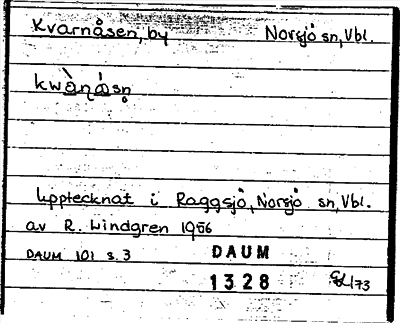 Kvarnåsen, by Norsjö sn, Vbl.
kwànåsn̥
Upptecknat i Raggsjö, Norsjö sn, Vbl.
av R. Lindgren 1956
DAUM 101 s. 3 DAUM
1328 /73